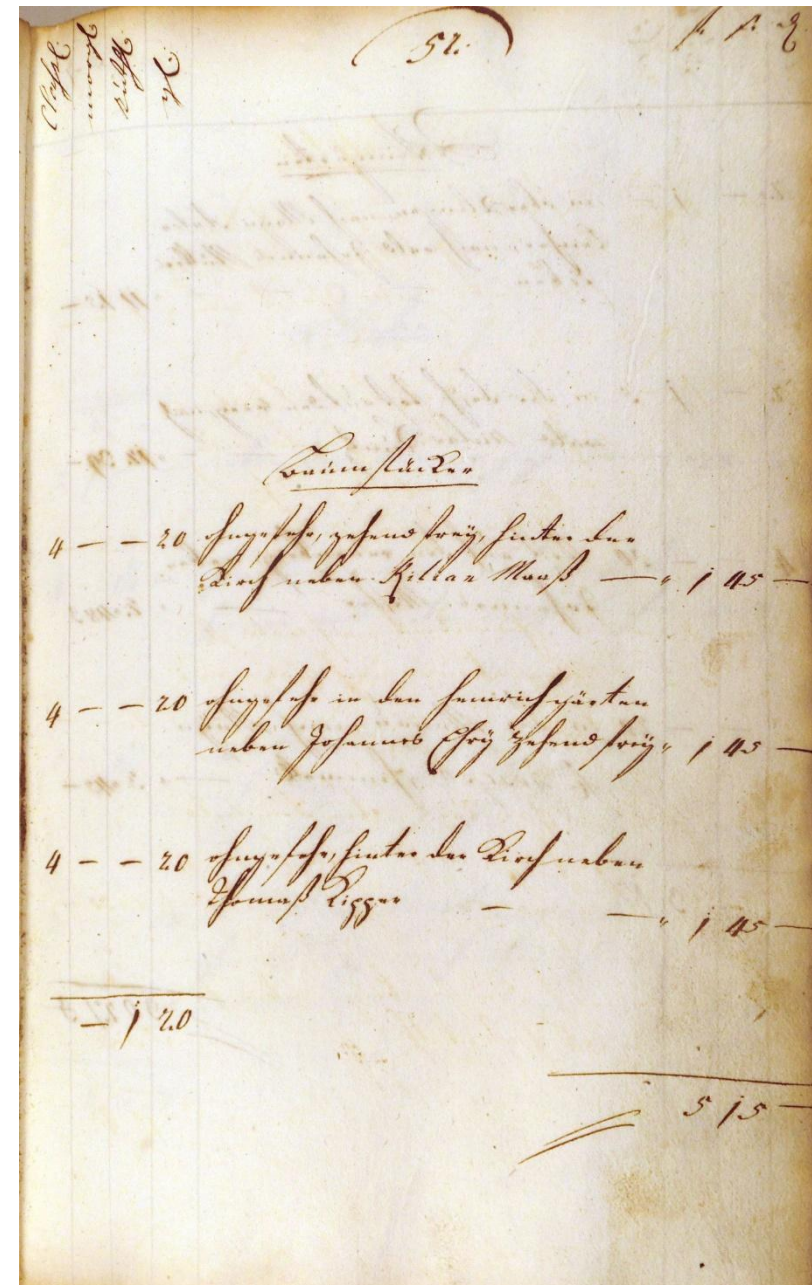 51.
Classe
Morgen
Ruth
Baumstücker
4 — — 20 ohngefehr, zehend frey, hinter der
Kirch neben Kilian Maaß — „ 1 45 —
4 — — 20 ohngefehr in den heinrichgärten
neben Johannes zehend frey „ 1 45 —
4 — — 20 ohngefehr, hinter der Kirch neben
Thomaß Kipper — — „ 1 45 —
— 1 20
5 15 —